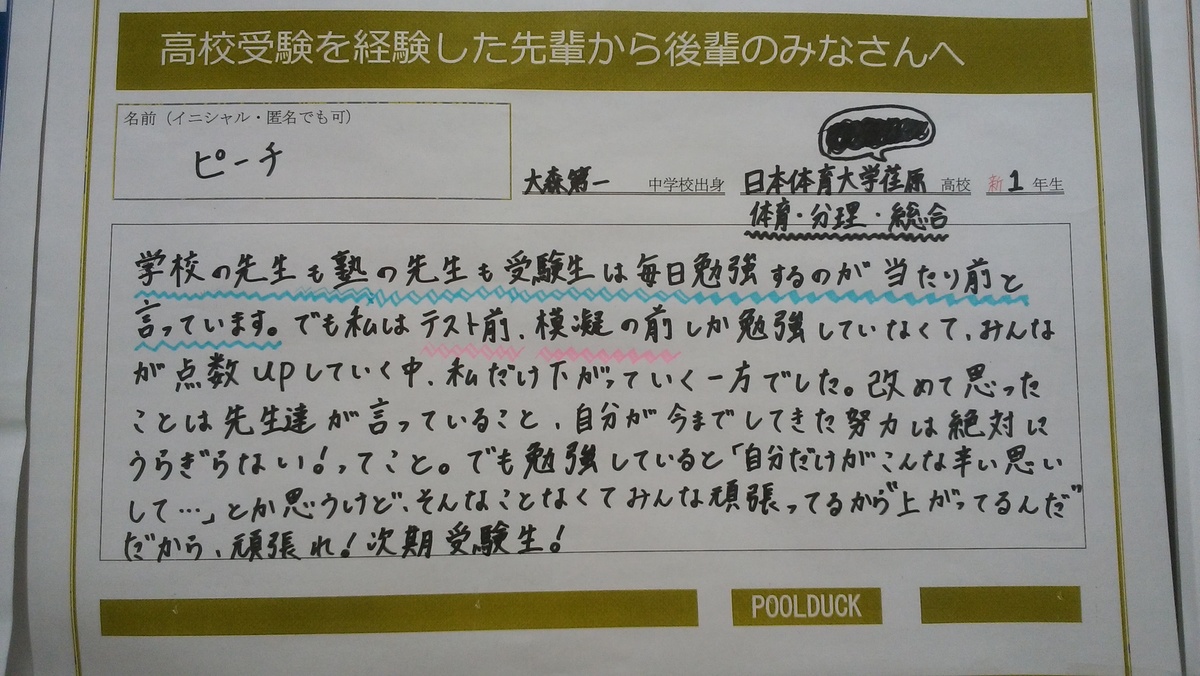 高校受験を経験した先輩から後輩のみなさんへ
名前（イニシャル・匿名でも可）
ピーチ
大森第一 中学校出身 日本体育大学荏原 高校 新1年生
体育・分理・総合
学校の先生も塾の先生も受験生は毎日勉強するのが当たり前と
言っています。でも私はテスト前、模凝の前しか勉強していなくて、みんな
が点数upしていく中、私だけ下がっていく一方でした。改めて思った
ことは先生達が言っていること、自分が今までしてきた努力は絶対に
うらぎらない！ってこと。でも勉強していると「自分だけがこんな辛い思い
して…」とか思うけど、そんなことなくてみんな頑張ってるから上がってるんだ
だから、頑張れ！次期受験生！
POOLDUCK